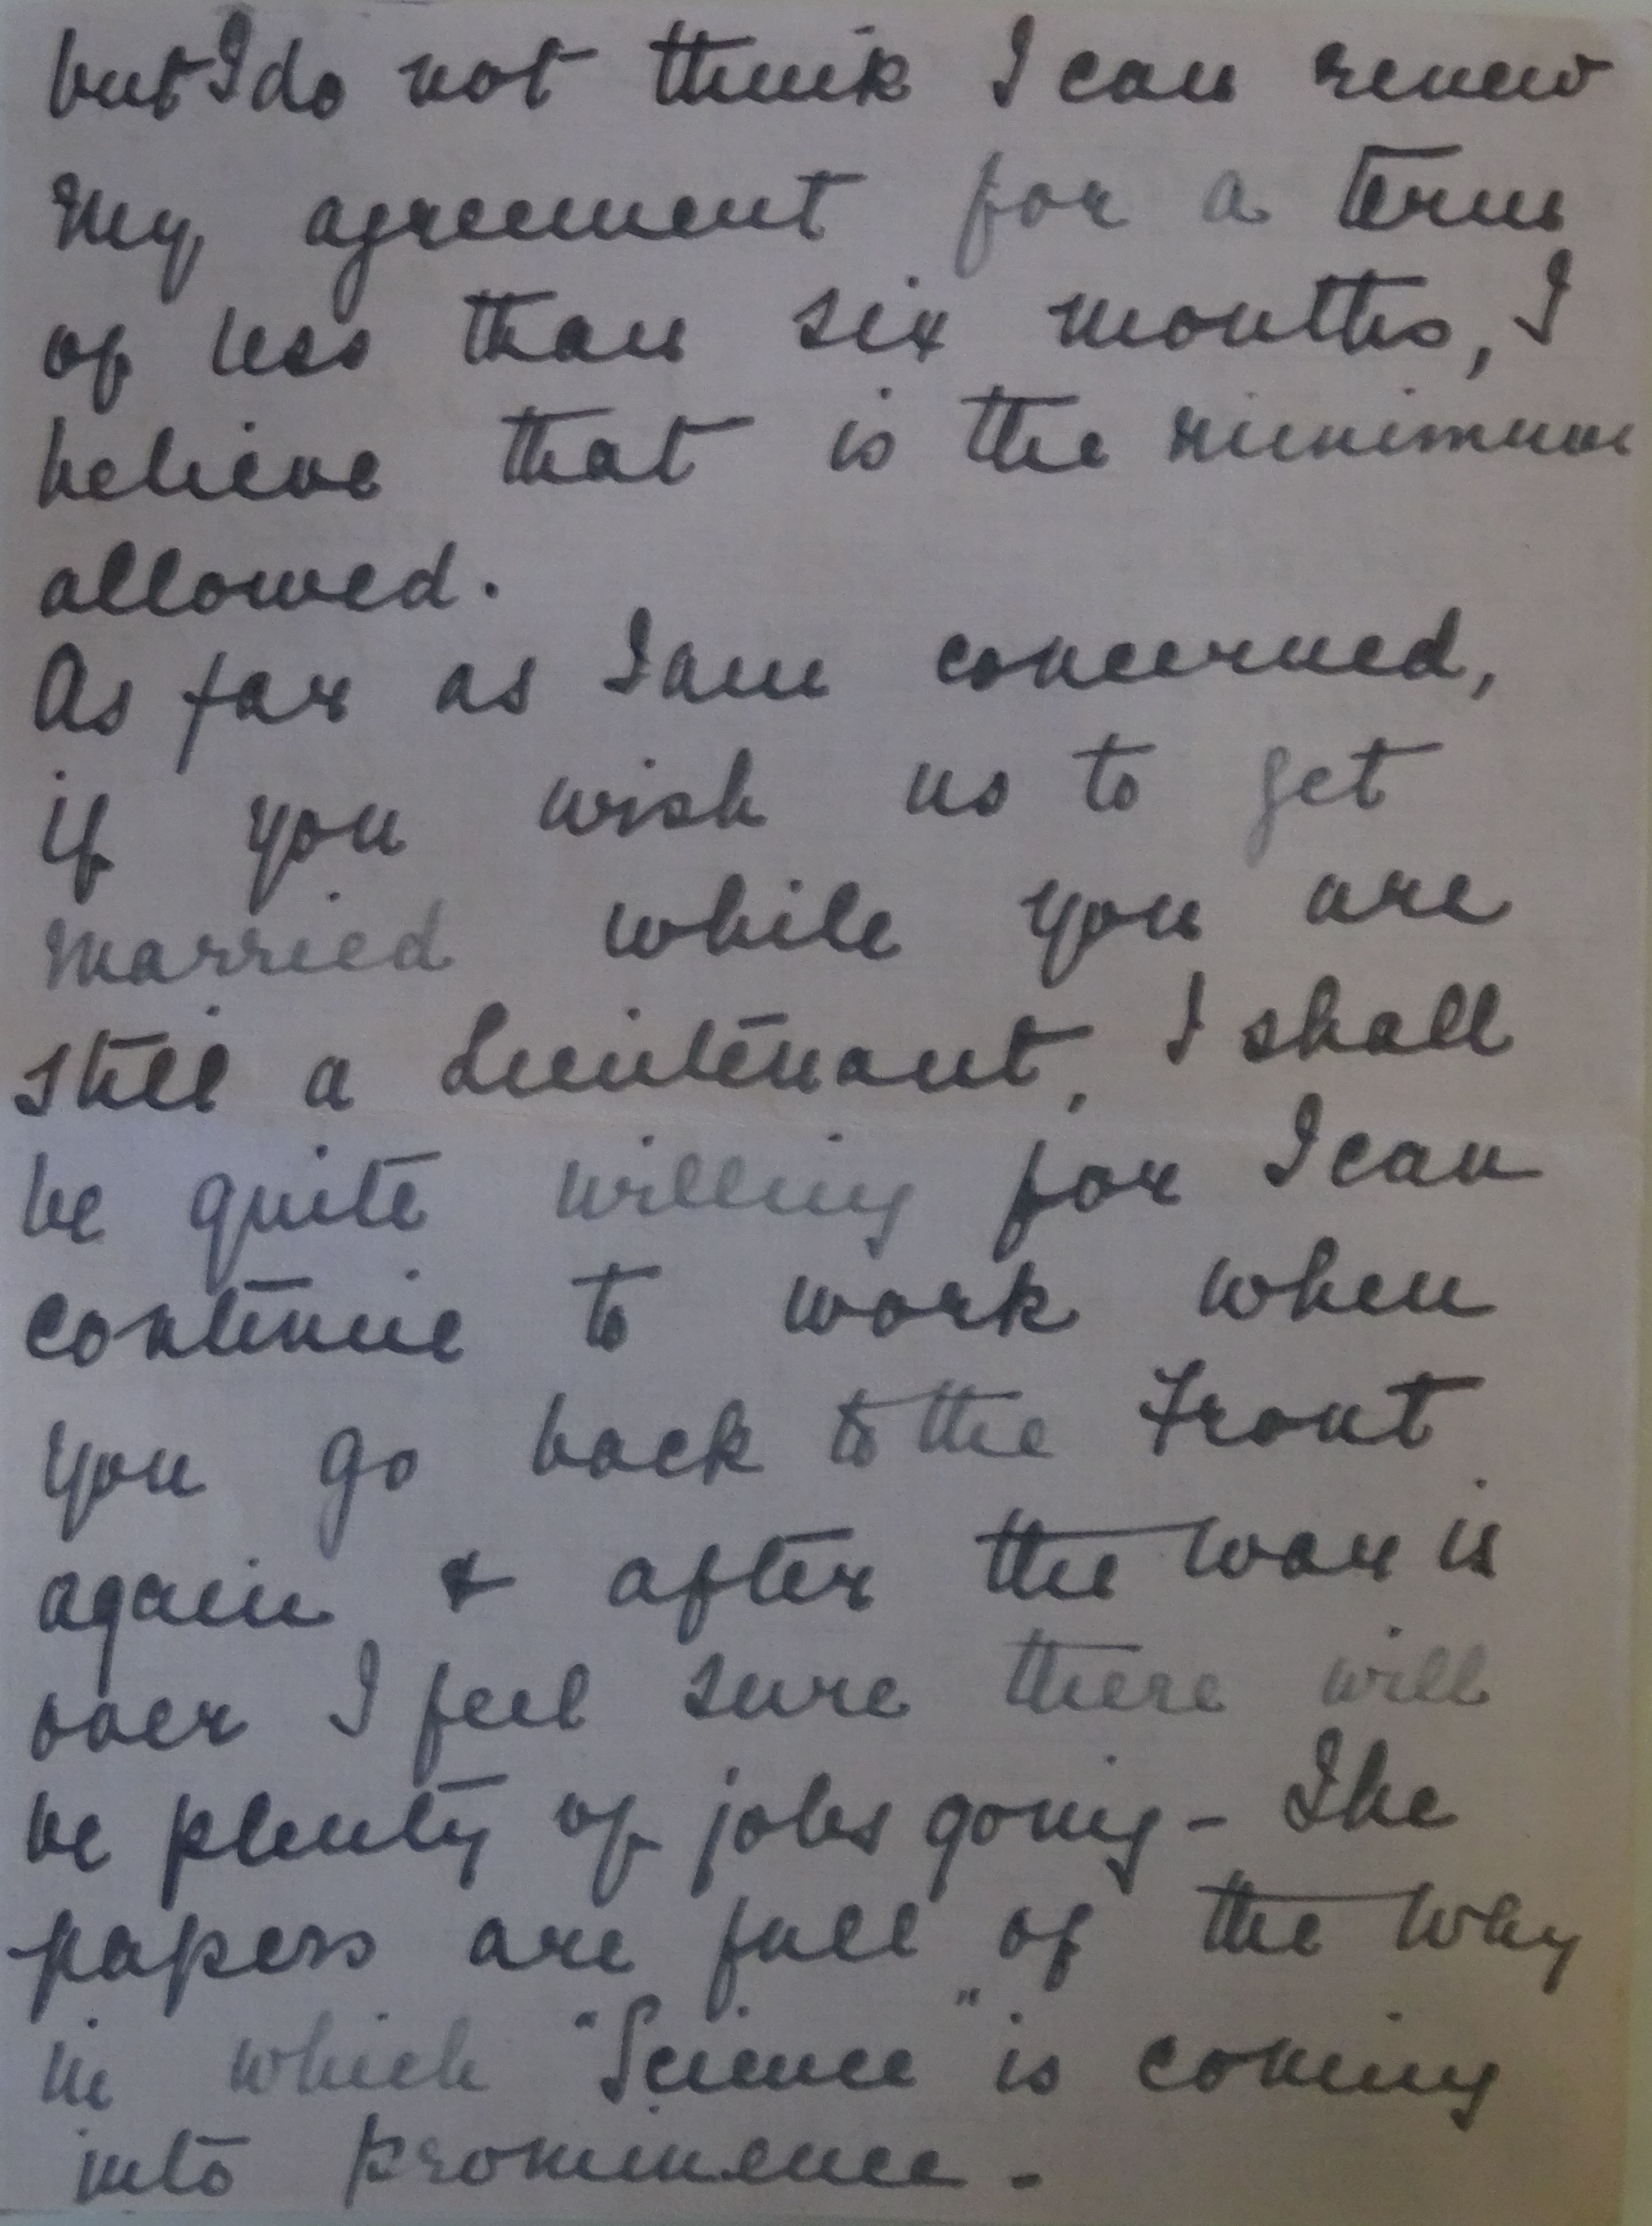 but I do not think I can renew
my agreement for a term
of less than six months, I
believe that is the minimum
allowed.
As far as I am concerned,
if you wish us to get
married while you are
still a Lieutenant, I shall
be quite willing for I can
continue to work when
you go back to the Front
again & after the war is
over I feel sure there will
be plenty of jobs going - The
papers are full of the way
in which "Science" is coming
into prominence -